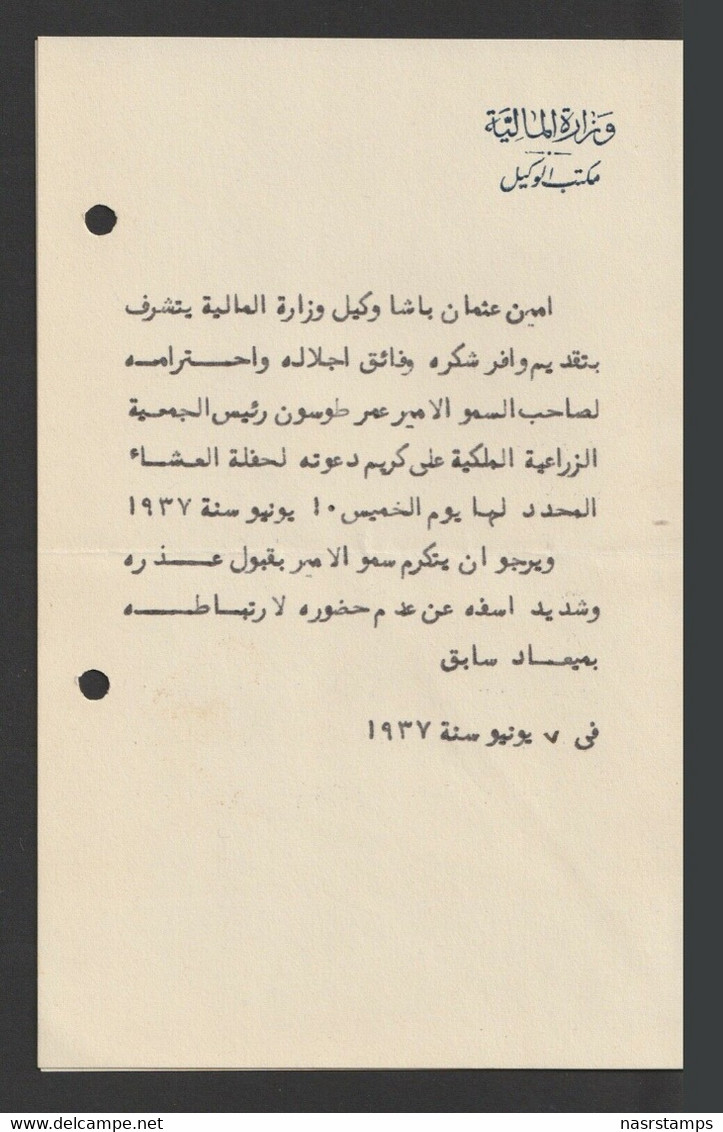 وزارة المالية
مكتب الوكيل
امين عثمان باشا وكيل وزارة المالية يتشرف
بتقديم وافر شكره وفائق اجلاله واحترامه
لصاحب السمو الامير عمر طوسون رئيس الجمعية
الزراعية الملكية على كريم دعوته لحفلة العشاء
المحدد لها يوم الخميس ١٠ يونيو سنة ١٩٣٧
ويرجو ان يتكرم سمو الامير بقبول عذره
وشديد اسفه عن عدم حضوره لارتباطه
بميعاد سابق
فى ٧ يونيو سنة ١٩٣٧
www.delcampe.net
nasrstamps